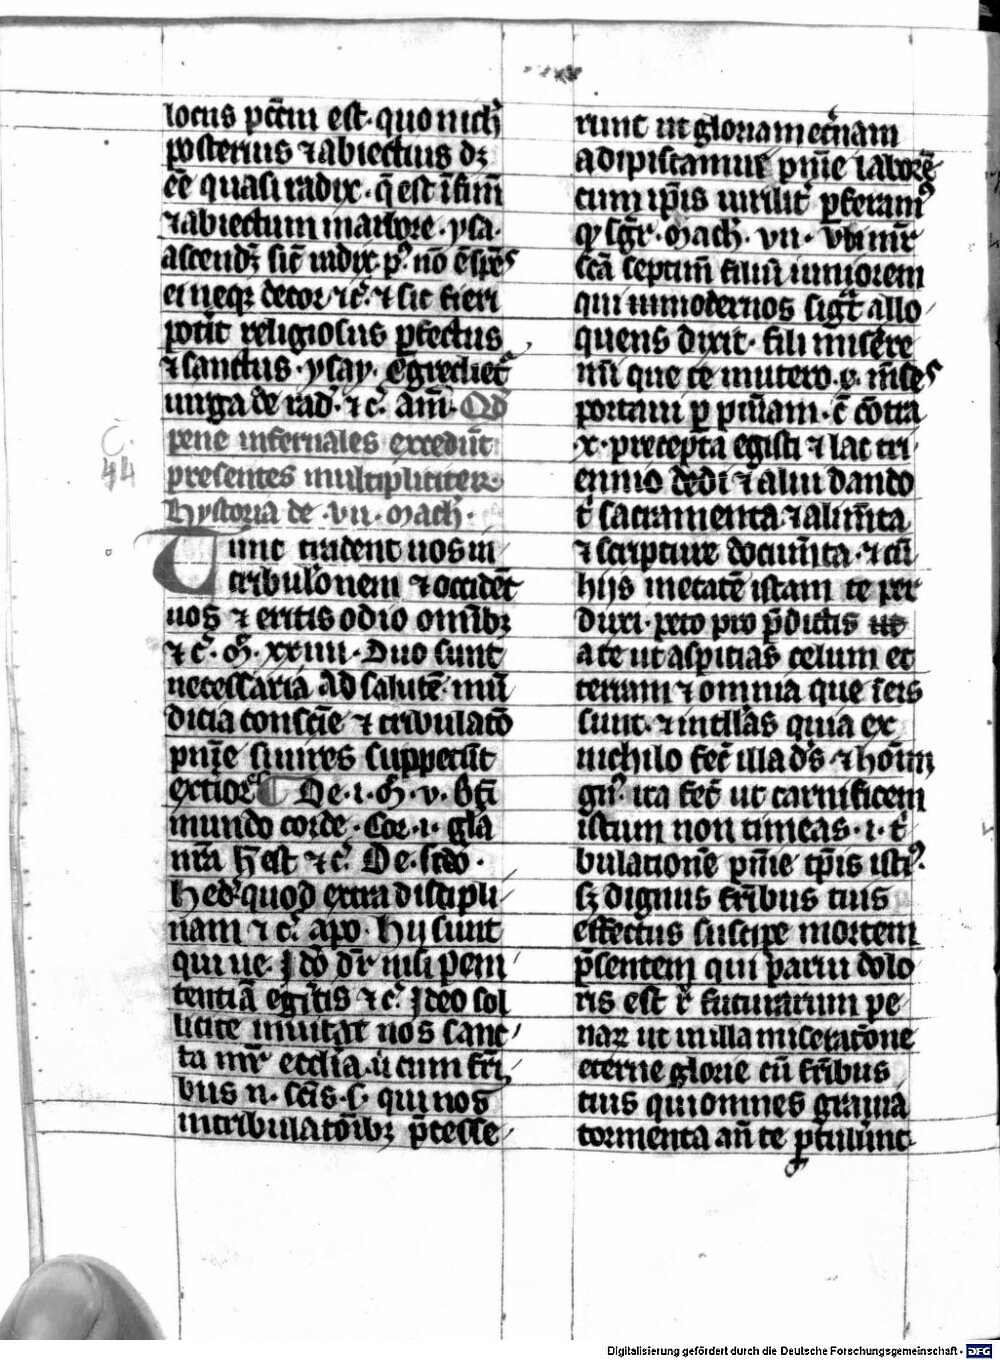 locus pctm est. quo nich
posterius ⁊ abiectius dꝫ
ee̅ quasi radix. q̅ est ifim̅
⁊ abiectum in arbore. ysa.
ascendꝫ sic̅ radix. ⁊ nō e̅ spēs
ei neqꝫ decor ⁊c̅. ⁊ sic fieri
potit religiosus ꝑfectus
⁊ sanctus. ysay. Egrediet̅
uirga de rad. ⁊ c̅. am̅. Qd
pene infernales excedūt
presentes multipliciter.
hystoria de .vii. mach.
c̅.
44
Tunc tradent uos in
tribul̅onem ⁊ occidēt
uos ⁊ eritis odio omībꝫ
⁊ c̅. M̅. xxiiii. Duo sunt
necessaria ad salutē. mū
dicia conscīe ⁊ tribulatō
pn̅ie si uires suppetūt
De .i. M̅. v. bt̅i
mundo corde. Cor. i. gla̅
nr̅a hest ⁊ c̅. De. scdo.
hebr̅. quod extra discipli
nam ⁊ c̅. apo. hii sunt
qui ue. Ido̅ dr̅ nisi peni
tentiā eg̅itis ⁊ c̅. Ideo sol
licite inuitat nos sanc
ta mr̅ ecclia. ut cum fr̅i
bus n. scīs. s. qui nos
in tribulatōibꝫ p̅cesse
runt ut gloriam et̅nam
adipiscamur pn̅ie laborē
cum ip̅is uirilit̅ ꝑferam9
mach. vii. vbi mr̅
scā septim̅ filiū iuniorem
qui modernos sigt̅ allo
quens dixit. fili miserere
mi que te in utero. ix. m̅ses
portaui ꝑ
.x. precepta egisti ⁊ lac tri
ennio dedi ⁊ alui dando
t̅ sacramenta ⁊ alim̅ta
⁊ scripture docum̅ta. ⁊ cū
hijs in etatē istam te per
duxi. peto pro p̅dictis
a te ut aspicias celum et
terram ⁊ omnia que in̅ eis
sunt. ⁊ intll̅as quia ex
nichilo fec̅ illa d̅s ⁊ hōim̅
gn̅9. ita fec̅ ut carnificem
istum non timeas. i. t̅
bulationē pn̅ie tp̅is isti9.
sꝫ dignus fr̅ibus tuis
effectus suscipe mortem
p̅sentem qui parui dolo
ris est r̅ futurarum pe
naꝝ ut in illa miseratōne
eterne glorie cū fr̅ibus
tuis qui omnes grauia
tormenta an̅ te ꝑtulūnt
Digitalisierung gefördert durch die Deutsche Forschungsgemeinschaft - DFG